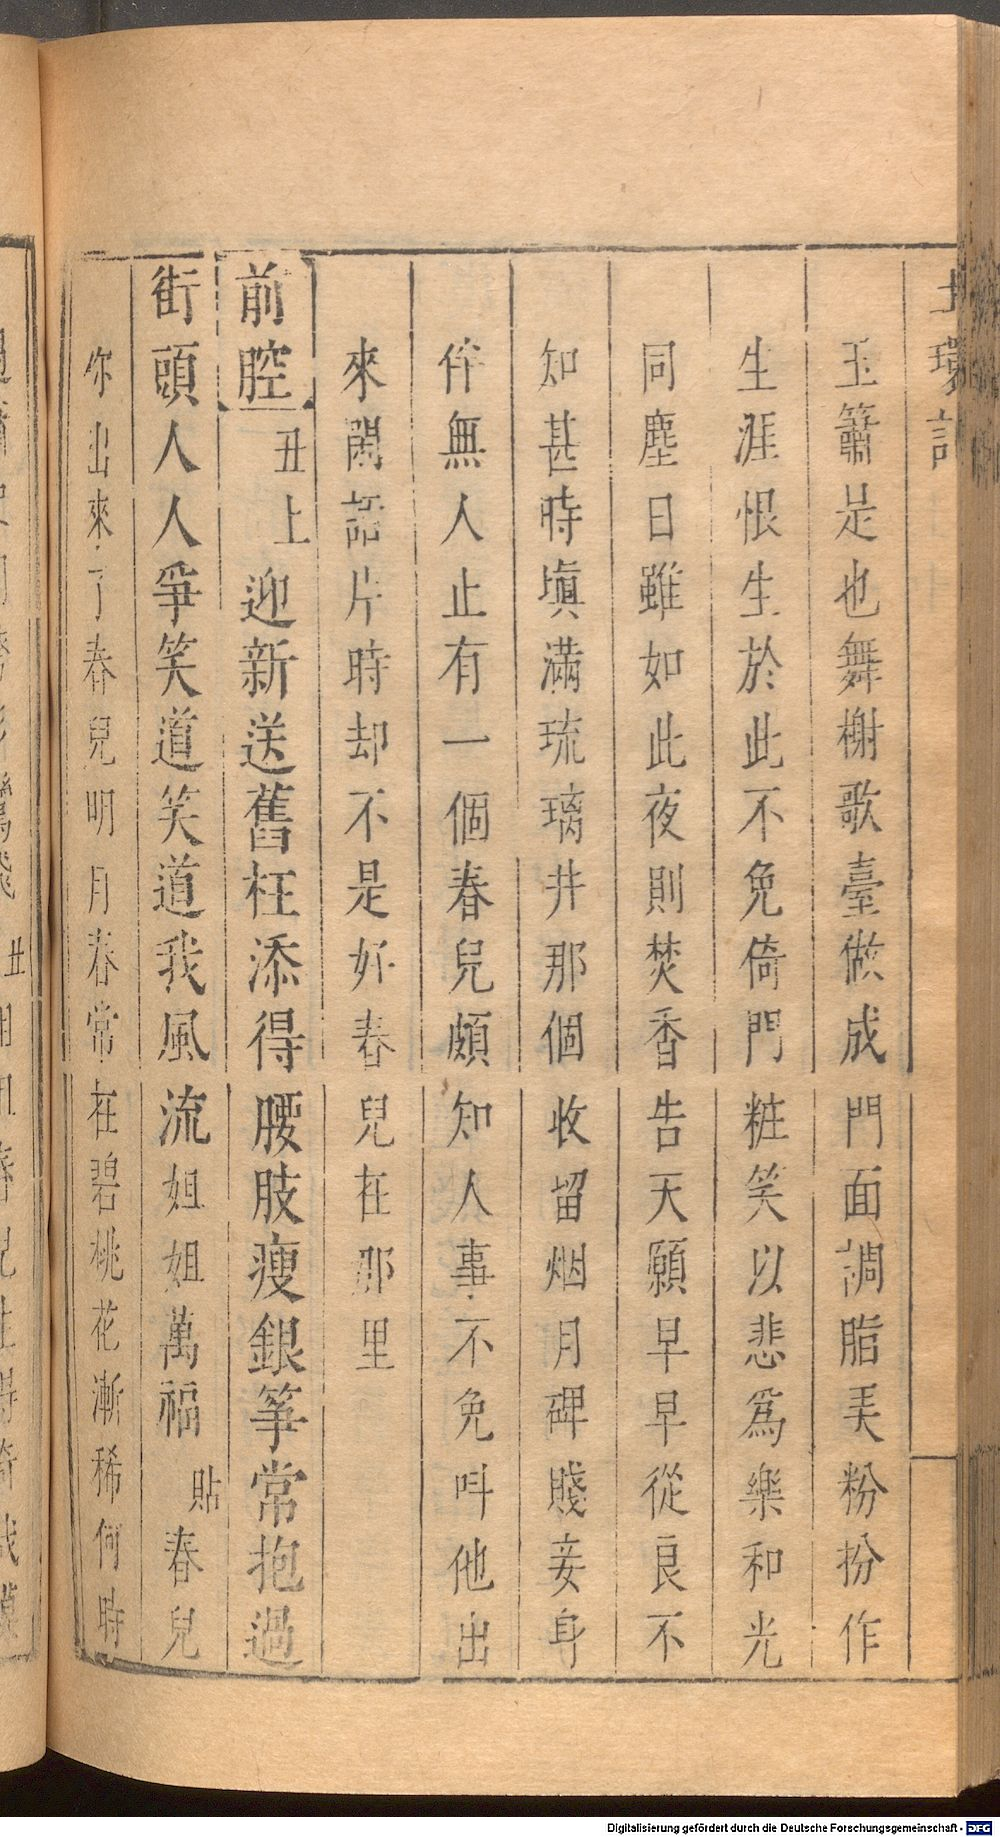 玉簫是也舞榭歌臺做成門面調脂弄粉扮作
生涯恨生於此不免倚門粧笑以悲爲樂和光
同塵日雖如此夜則焚香告天願早早從良不
知甚時塡滿琉璃井那個收留烟月碑賤妾身
伴無人止有一個春兒頗知人事不免呌他出
來閑話片時却不是好春兒在那里
前腔 丑上 迎新送舊枉添得腰肢瘦銀筝常抱過
街頭人人爭笑道笑道我風流姐姐萬福 貼 春兒
你出來了春兒明月春常在碧桃花漸稀何時
Digitalisierung gefördert durch die Deutsche Forschungsgemeinschaft - DFG